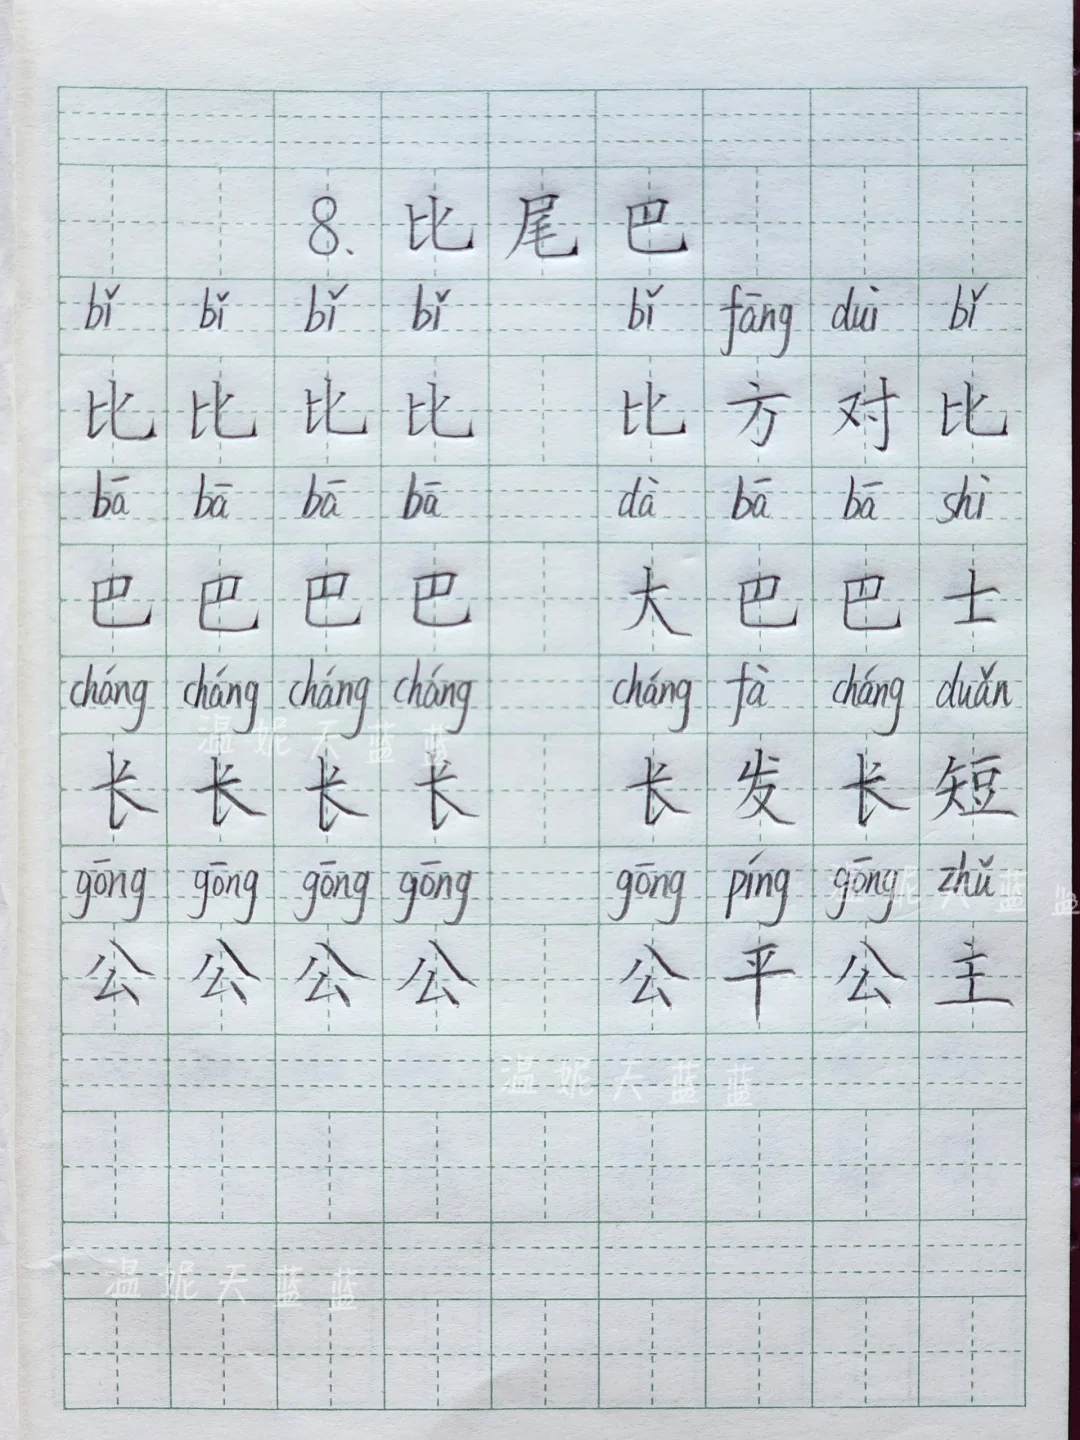 8. 比尾巴
bǐ bǐ bǐ bǐ bǐ fāng duì bǐ
比 比 比 比 比 方 对 比
bā bā bā bā dà bā bā shì
巴 巴 巴 巴 大 巴 巴 士
cháng cháng cháng cháng cháng fà cháng duǎn
温妮天蓝蓝
长 长 长 长 长 发 长 短
gōng gōng gōng gōng gōng píng gōng zhǔ
温妮天蓝蓝
公 公 公 公 公 平 公 主
温妮天蓝蓝
温妮天蓝蓝